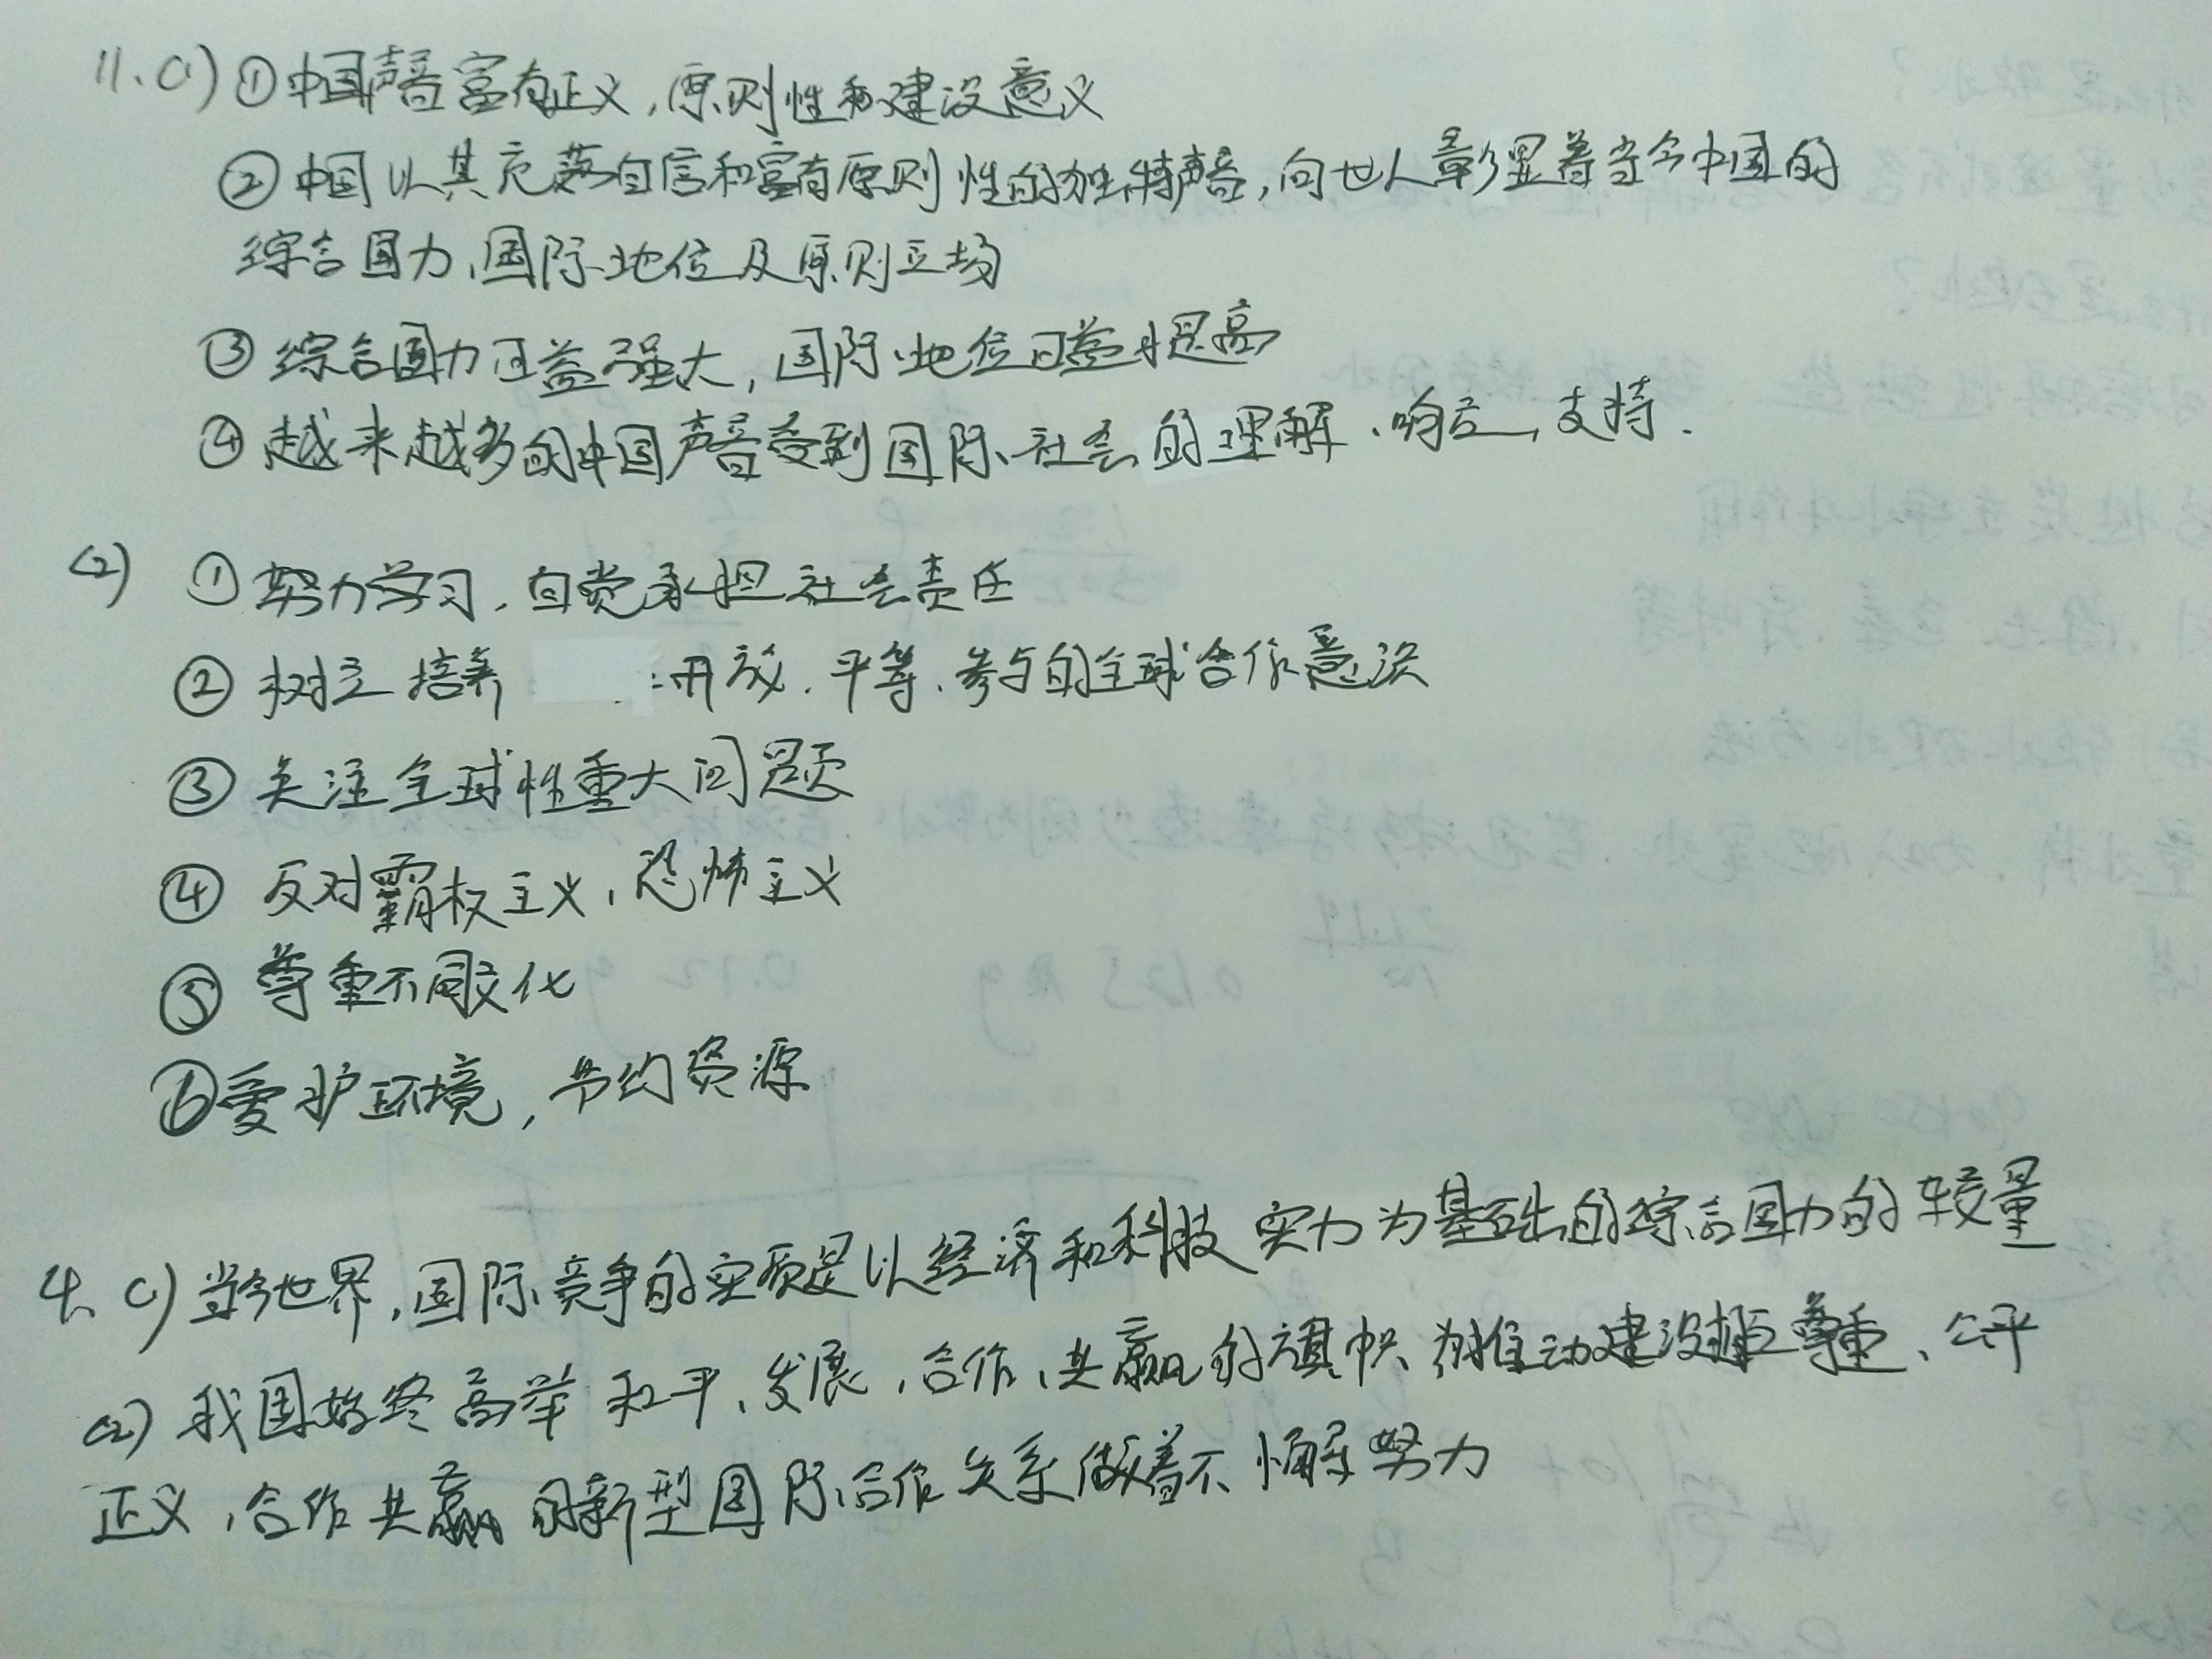 11、(1) ①中国声音富有正义,原则性和建设意义
②中国以其充满自信和富有原则性的独特声音,向世人彰显着当今中国的
综合国力、国际地位及原则立场
③综合国力日益强大,国际地位日益提高
④越来越多的中国声音受到国际社会的理解、响应,支持.
(2) ①努力学习,自觉承担社会责任
②树立培养 开放、平等、参与的全球合作意识
③关注全球性重大问题
④反对霸权主义,恐怖主义
⑤尊重不同文化
⑥爱护环境,节约资源
4、(1)当今世界,国际竞争的实质是以经济和科技实力为基础的综合国力的较量
(2)我国始终高举和平、发展、合作、共赢的旗帜 为推动建设相互尊重、公平
正义,合作共赢的新型国际合作关系做着不懈努力